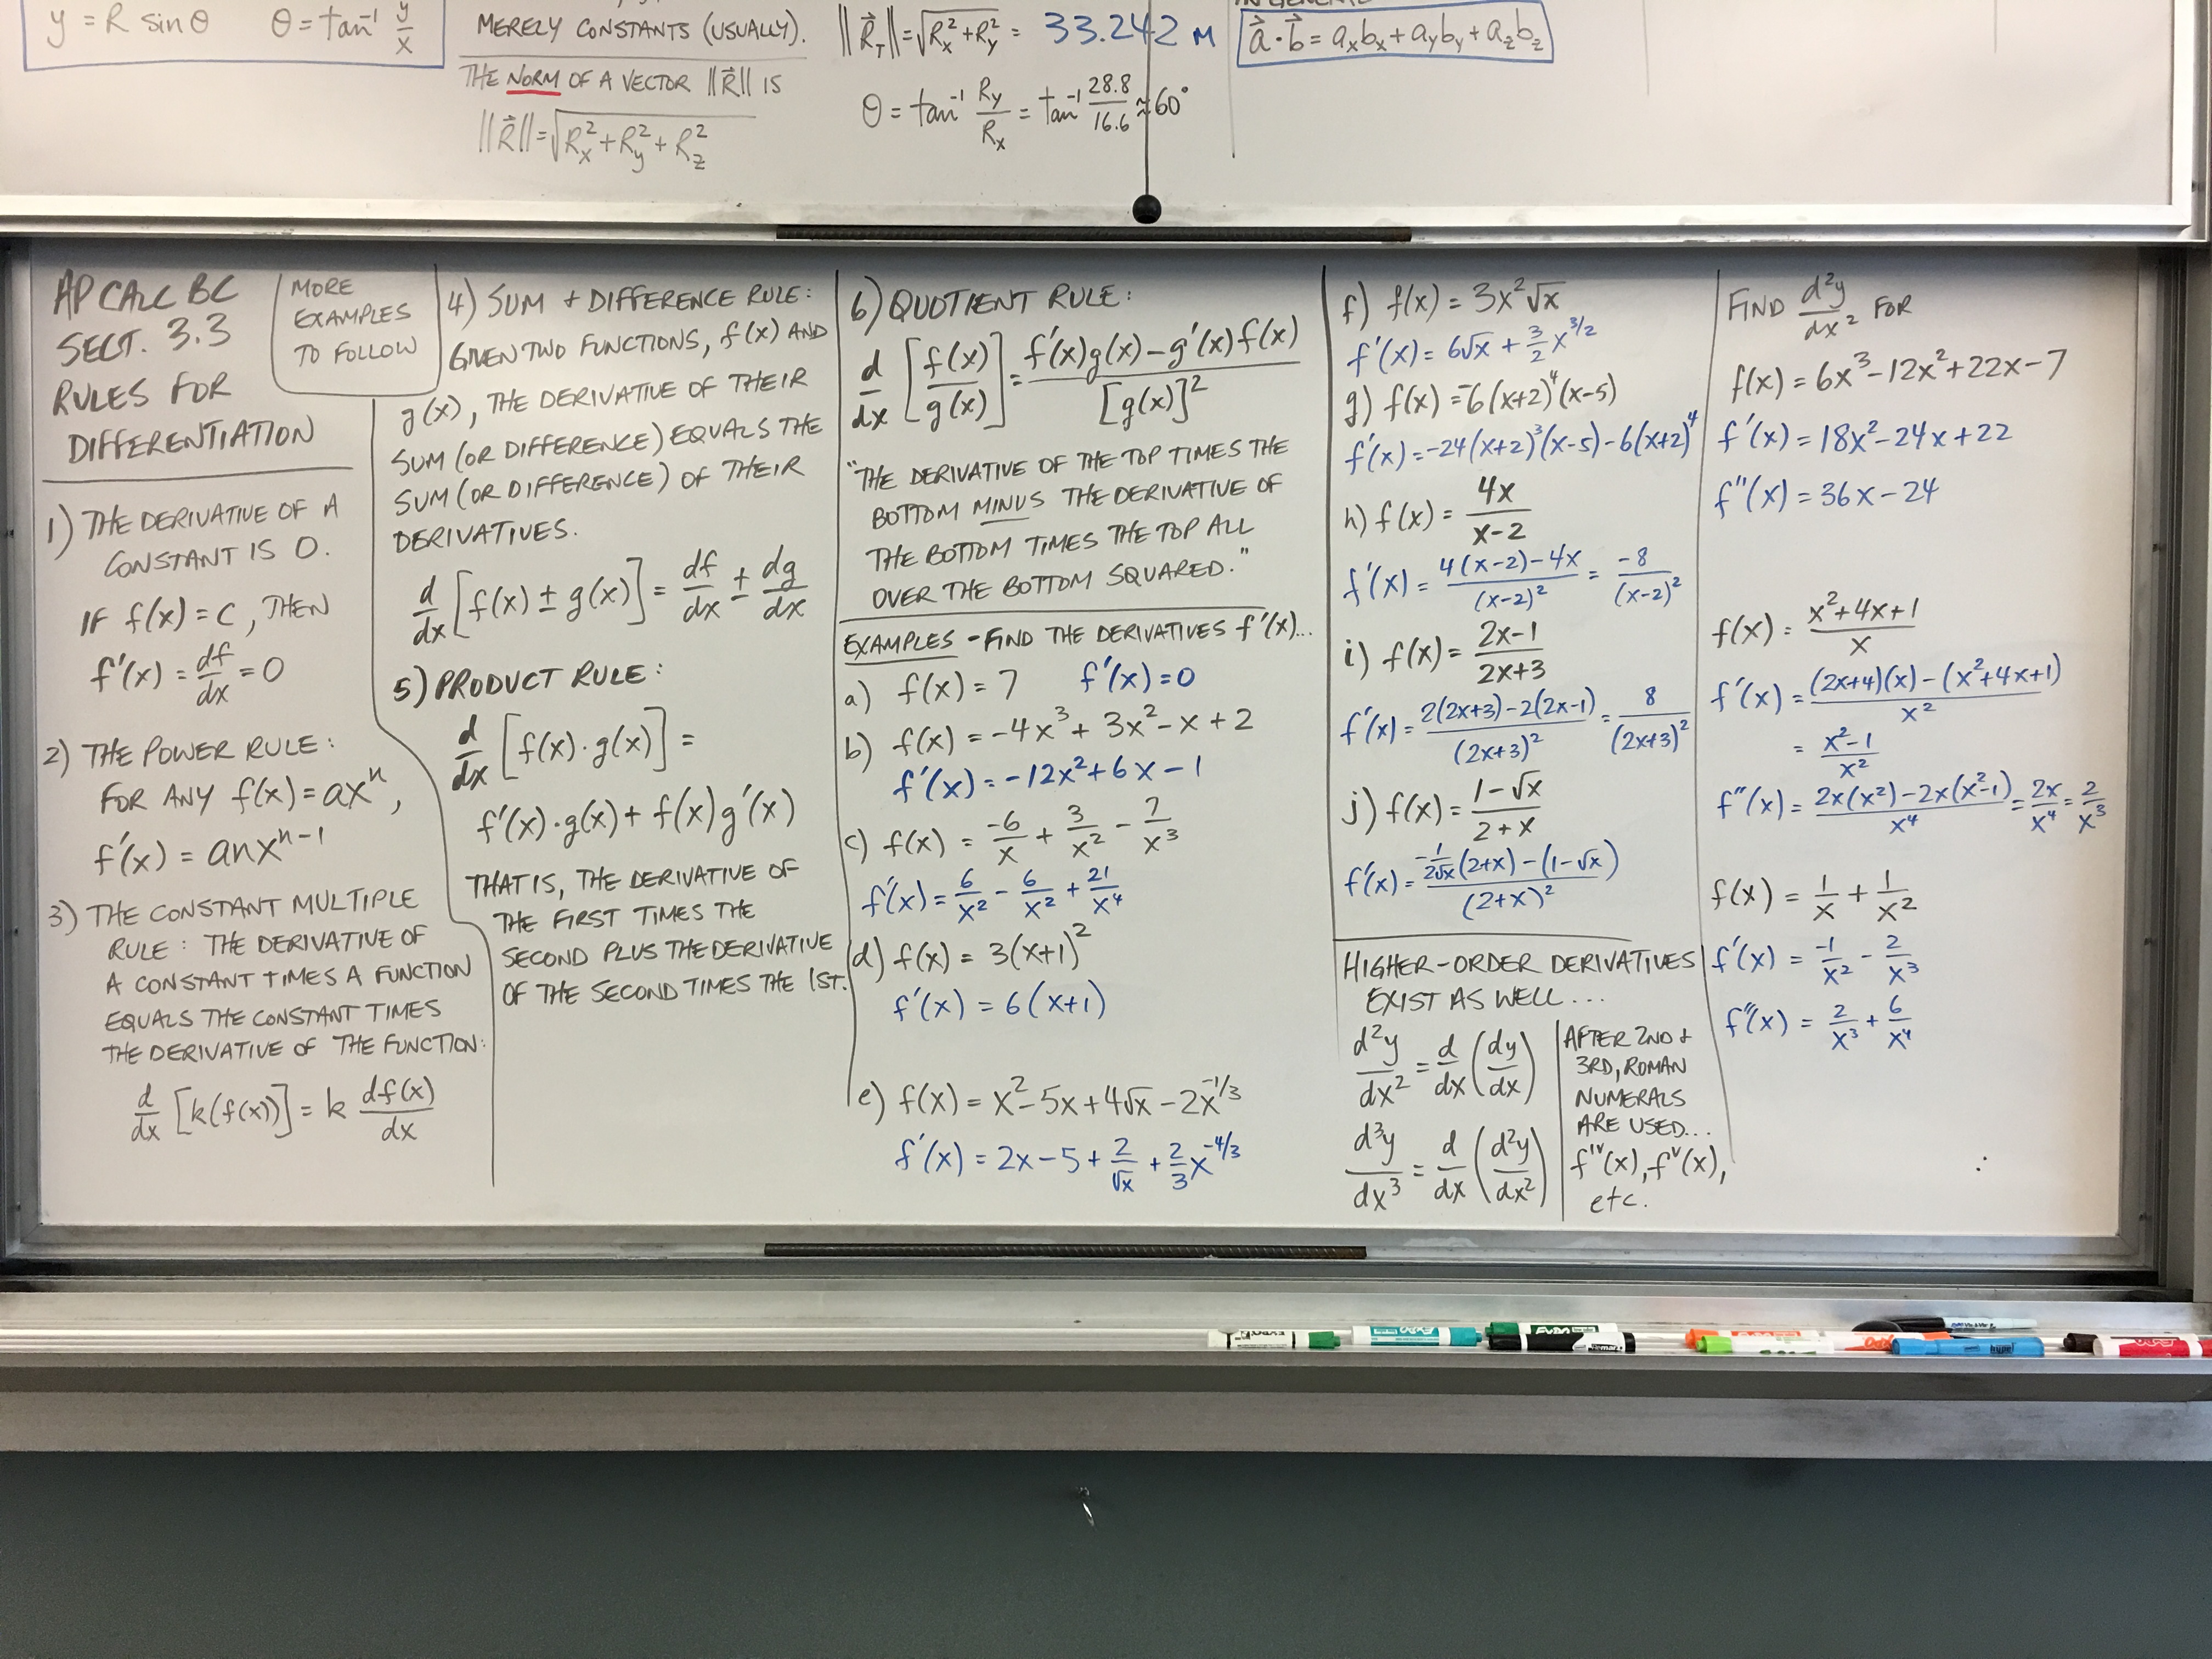 y = R sinθ θ = tan⁻¹ y/x
MERELY CONSTANTS (USUALLY).
THE NORM OF A VECTOR ||R⃗|| IS
||R⃗|| = √(Rx² + Ry² + Rz²)
||R⃗T|| = √(Rx² + Ry²) = 33.242 M
θ = tan⁻¹ Ry/Rx = tan⁻¹ 28.8/16.6 ≈ 60°
a⃗ · b⃗ = axbx + ayby + azbz
AP CALC BC
SECT. 3.3
RULES FOR
DIFFERENTIATION
MORE
EXAMPLES
TO FOLLOW
1) THE DERIVATIVE OF A
CONSTANT IS 0.
IF f(x) = C, THEN
f'(x) = df/dx = 0
2) THE POWER RULE:
FOR ANY f(x) = axⁿ,
f'(x) = anxⁿ⁻¹
3) THE CONSTANT MULTIPLE
RULE: THE DERIVATIVE OF
A CONSTANT TIMES A FUNCTION
EQUALS THE CONSTANT TIMES
THE DERIVATIVE OF THE FUNCTION:
d/dx [k(f(x))] = k df(x)/dx
4) SUM + DIFFERENCE RULE:
GIVEN TWO FUNCTIONS, f(x) AND
g(x), THE DERIVATIVE OF THEIR
SUM (OR DIFFERENCE) EQUALS THE
SUM (OR DIFFERENCE) OF THEIR
DERIVATIVES.
d/dx [f(x) ± g(x)] = df/dx ± dg/dx
5) PRODUCT RULE:
d/dx [f(x)·g(x)] =
f'(x)·g(x) + f(x)g'(x)
THAT IS, THE DERIVATIVE OF
THE FIRST TIMES THE
SECOND PLUS THE DERIVATIVE
OF THE SECOND TIMES THE 1ST.
6) QUOTIENT RULE:
d/dx [f(x)/g(x)] = f'(x)g(x) − g'(x)f(x) / [g(x)]²
"THE DERIVATIVE OF THE TOP TIMES THE
BOTTOM MINUS THE DERIVATIVE OF
THE BOTTOM TIMES THE TOP ALL
OVER THE BOTTOM SQUARED."
EXAMPLES - FIND THE DERIVATIVES f'(x)...
a) f(x) = 7 f'(x) = 0
b) f(x) = −4x³ + 3x² − x + 2
f'(x) = −12x² + 6x − 1
c) f(x) = −6/x + 3/x² − 7/x³
f'(x) = 6/x² − 6/x² + 21/x⁴
d) f(x) = 3(x+1)²
f'(x) = 6(x+1)
e) f(x) = x² − 5x + 4√x − 2x^(−1/3)
f'(x) = 2x − 5 + 2/√x + 2/3 x^(−4/3)
f) f(x) = 3x²√x
f'(x) = 6√x + 3/2 x^(3/2)
g) f(x) = −6(x+2)⁴(x−5)
f'(x) = −24(x+2)³(x−5) − 6(x+2)⁴
h) f(x) = 4x/(x−2)
f'(x) = 4(x−2)−4x/(x−2)² = −8/(x−2)²
i) f(x) = 2x−1/2x+3
f'(x) = 2(2x+3)−2(2x−1)/(2x+3)² = 8/(2x+3)²
j) f(x) = 1−√x/2+x
f'(x) = −1/2√x (2+x) − (1−√x)/(2+x)²
HIGHER-ORDER DERIVATIVES
EXIST AS WELL...
d²y/dx² = d/dx (dy/dx)
d³y/dx³ = d/dx (d²y/dx²)
AFTER 2ND +
3RD, ROMAN
NUMERALS
ARE USED...
fᴵⱽ(x), fⱽ(x),
etc.
FIND d²y/dx² FOR
f(x) = 6x³ − 12x² + 22x − 7
f'(x) = 18x² − 24x + 22
f''(x) = 36x − 24
f(x) = x²+4x+1/x
f'(x) = (2x+4)(x) − (x²+4x+1)/x²
= x²−1/x²
f''(x) = 2x(x²) − 2x(x²−1)/x⁴ = 2x/x⁴ = 2/x³
f(x) = 1/x + 1/x²
f'(x) = −1/x² − 2/x³
f''(x) = 2/x³ + 6/x⁴
EXPO